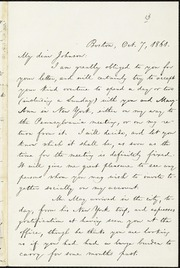 Boston, Oct. 7, 1861.
My dear Johnson:
I am greatly obliged to you for
your letter, and will certainly try to accept
your kind invitation to spend a day or two
(including a Sunday) with you and Mary
Ann in New York, either on my way to
the Pennsylvania meeting, or on my re-
turn from it. I will decide, and let you
know which it shall be, as soon as the
time for the meeting is definitely fixed.
It will give me great pleasure to see any
persons whom you may wish to invite to-
gether socially on my account.
Mr. May arrived in the city, to-
day, from his New York trip, and expresses
gratification at having seen you at the
office, though he thinks you are looking
as if you had had a large burden to
carry for some months past.